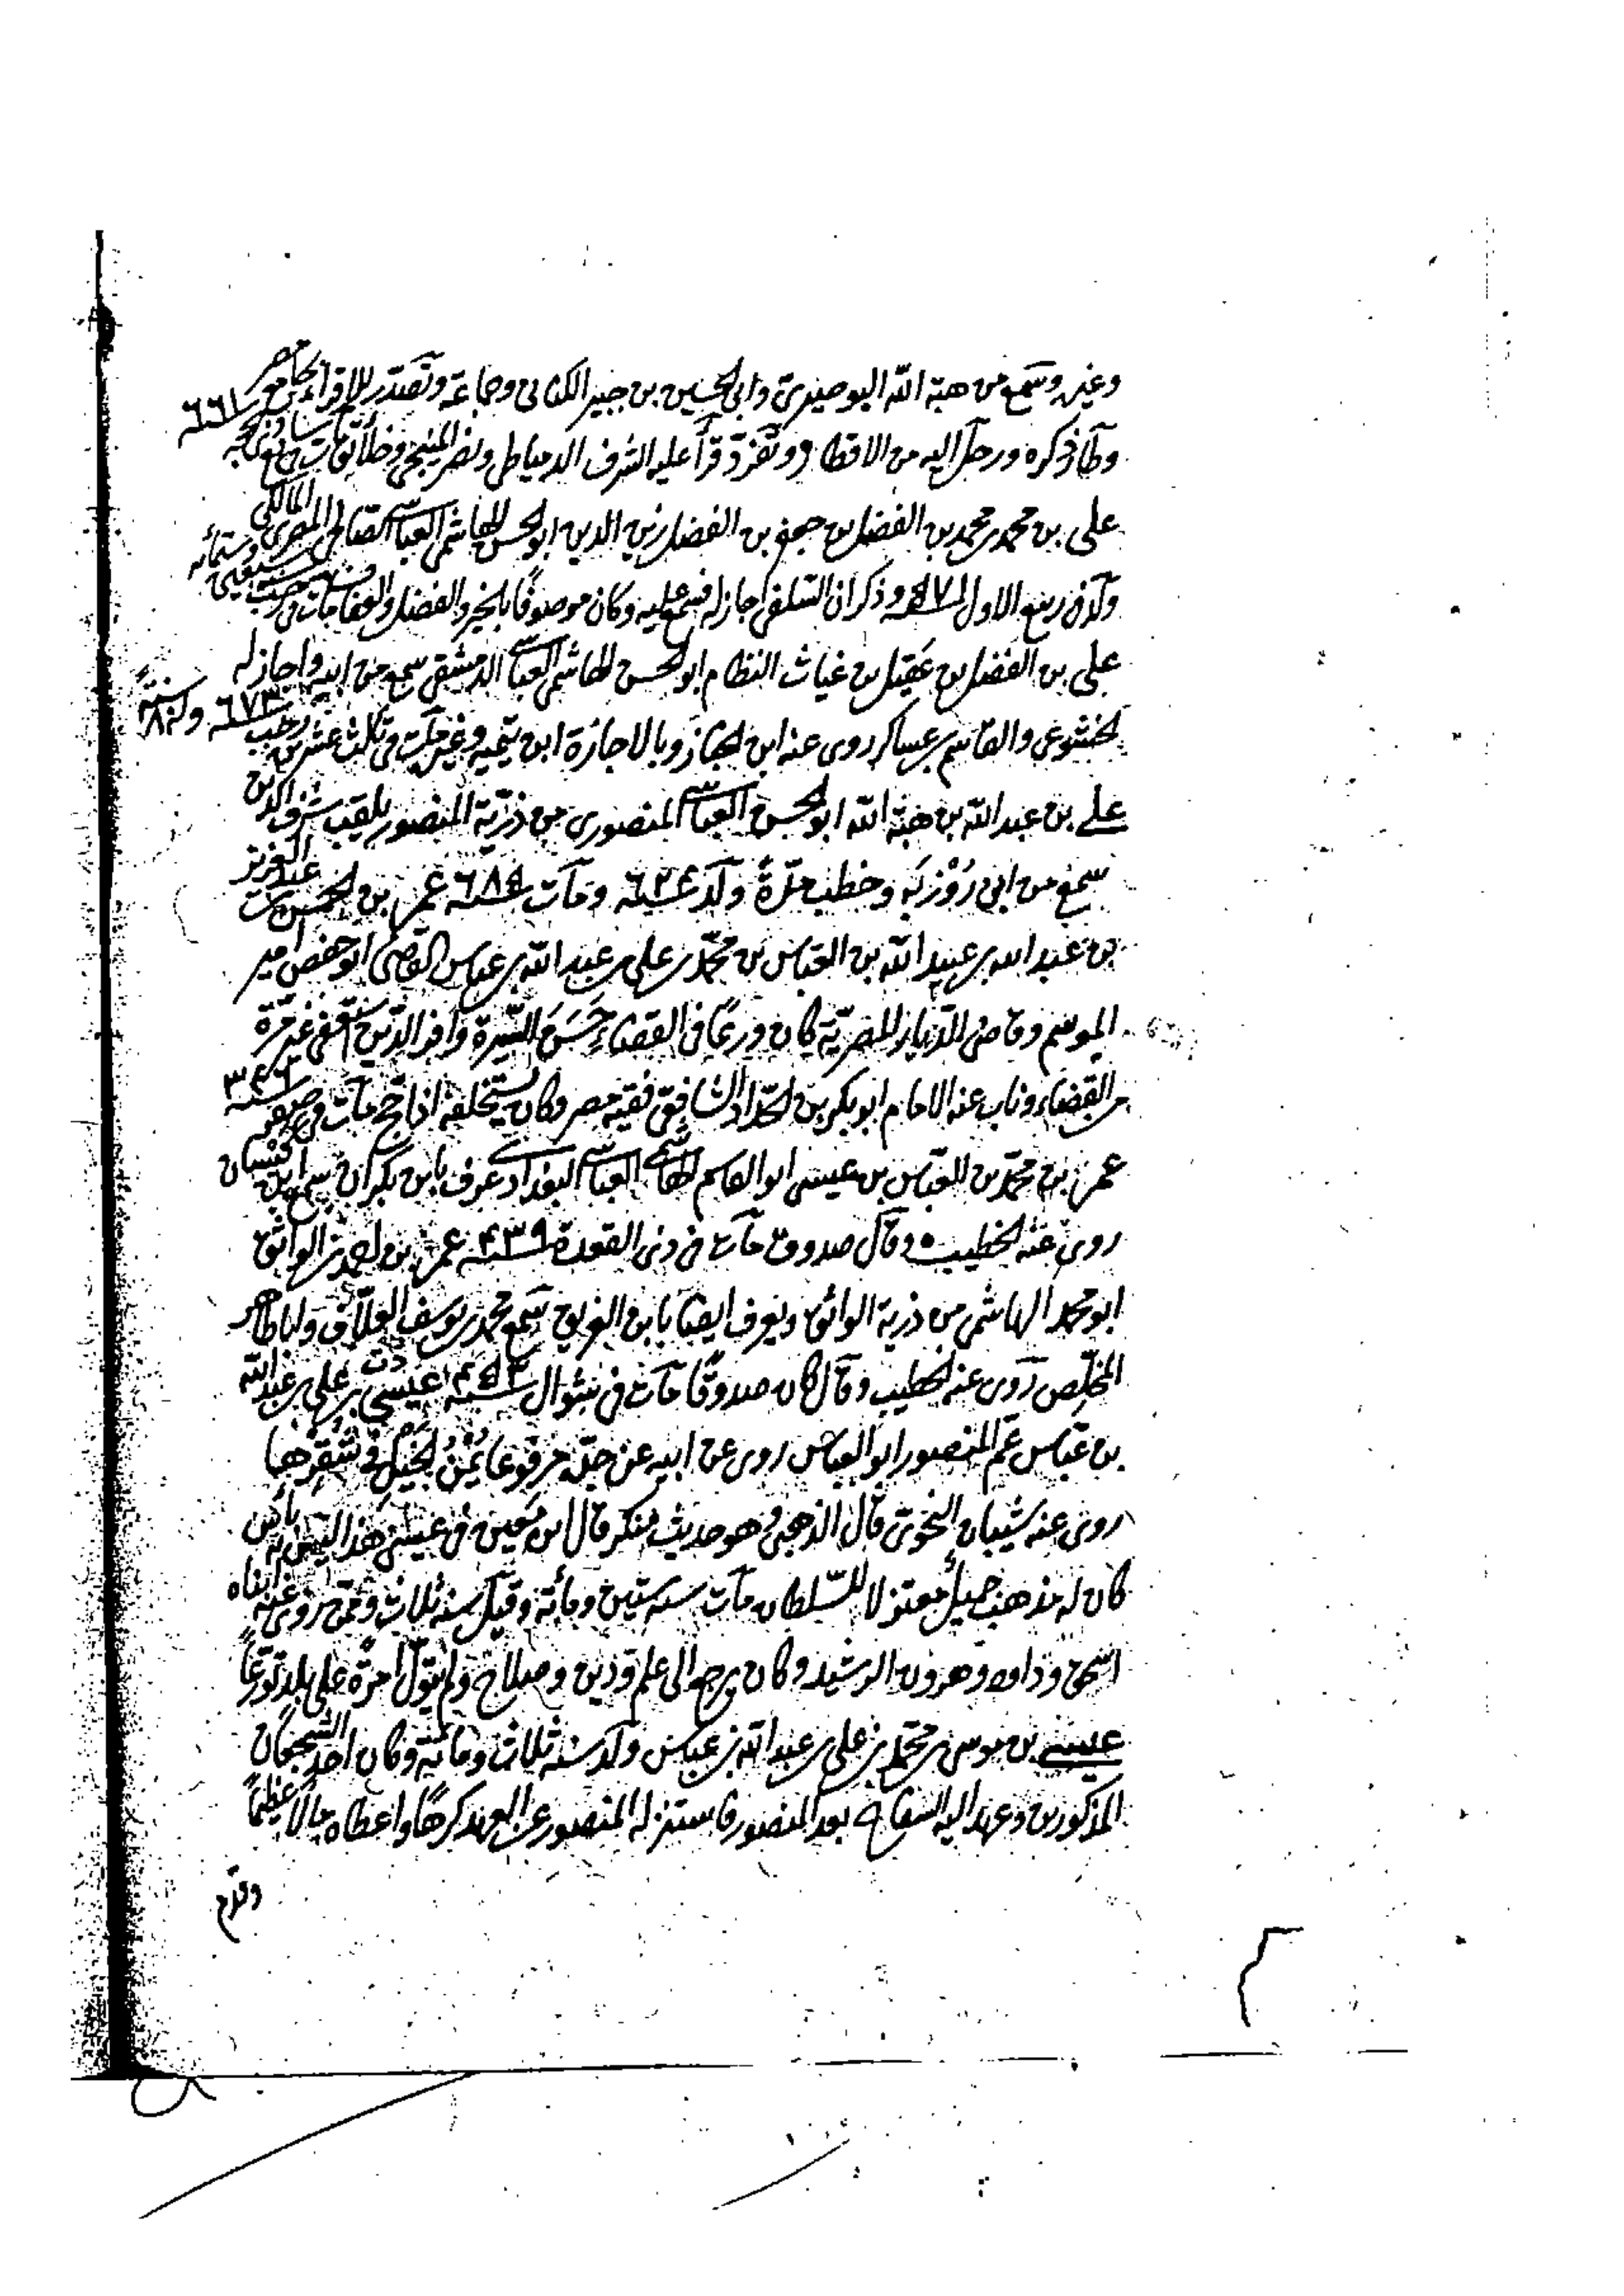 وغيره وسمع من هبة الله البوصيري وابي الحسين بن جبير الكناني وجماعة وتصدر للاقراء بجامع مصر
وطار ذكره ورحل اليه من الاقطار وتفرد قرأ عليه الشرف الدمياطي ونصر المنبجي وخلائق مات في ذي الحجه سنة ٦٦١
علي بن محمد بن محمد بن الفضل بن جعفر بن الفضل زين الدين ابو الحسن الهاشمي العباسي القاضي المصري المالكي
ولد في ربيع الاول وذكر ان السلفي اجاز له فسمع عليه وكان موصوفا بالخير والفضل والعفا مات في رجب وستمائه
علي بن الفضل بن عقيل بن غياث النظام ابو الحسن الهاشمي العباسي الدمشقي سمع من ابيه واجاز له
الخشوعي والقاسم بن عساكر روى عنه ابن الخباز وبالاجازة ابن تيميه وغيره مات في ثالث عشرين رجب سنة ٦٧٣
علي بن عبد الله بن هبة الله ابو الحسن العباسي المنصوري من ذرية المنصور يلقب شرف الدين
سمع من ابي رُوْزبَه وخطب مدّةً ولد سنة ٦٢٤ ومات سنة ٦٨٥ عمر بن الحسن بن عبد العزيز
بن عبد الله بن عبيد الله بن العباس بن محمد بن علي بن عبد الله بن عباس القاضي ابو حفص امير
الموسم وقاضي الديار المصرية كان ورعًا في القضاء حَسَنَ السّيرة وافر الدين استعفى غير مرّة
من القضاء وناب عنه الامام ابو بكر بن الحدّاد الشافعي فقيه مصر وكان يستخلفه اذا حج مات في صفر سنة ٣٤٦
عمر بن محمد بن العباس بن عيسى ابو القاسم الهاشمي العباسي البغدادي عرف بابن بكران سمع ابن كيسان
روى عنه الخطيب وقال صدوق مات في ذي القعدة سنة ٤٣٩ عمر بن احمد بن الواثق
ابو محمد الهاشمي من ذرية الواثق ويعرف ايضا بابن الغريق سمع محمد بن يوسف العلاف وابا طاهر
المخلّص روى عنه الخطيب وقال كان صدوقًا مات في شوال سنة ٤٥٣ عيسى بن علي بن عبد الله
بن عباس عم المنصور ابو العباس روى عن ابيه عن جدّه مرفوعا يُمْنُ الخيل في شُقْرِها
روى عنه شيبان النحوي قال الذهبي وهو حديث منكر قال ابن معين في عيسى هذا ليس به بأس
كان له مذهب جميل معتزلا للسّلطان مات سنة ستين ومائة وقيل سنة ثلاث وممن روى عنه ابناه
اسحق وداود وهرون الرشيد وكان يرجع الى علم ودين وصلاح ولم يتولّ امرة على بلد تورّعًا
عيسى بن موسى بن محمد بن علي بن عبد الله بن عباس ولد سنة ثلاث ومائة وكان احد الشجعان
المذكورين وعهد اليه السفاح بعد المنصور فاستنزله المنصور عن العهد كرهًا واعطاه مالا عظيمًا